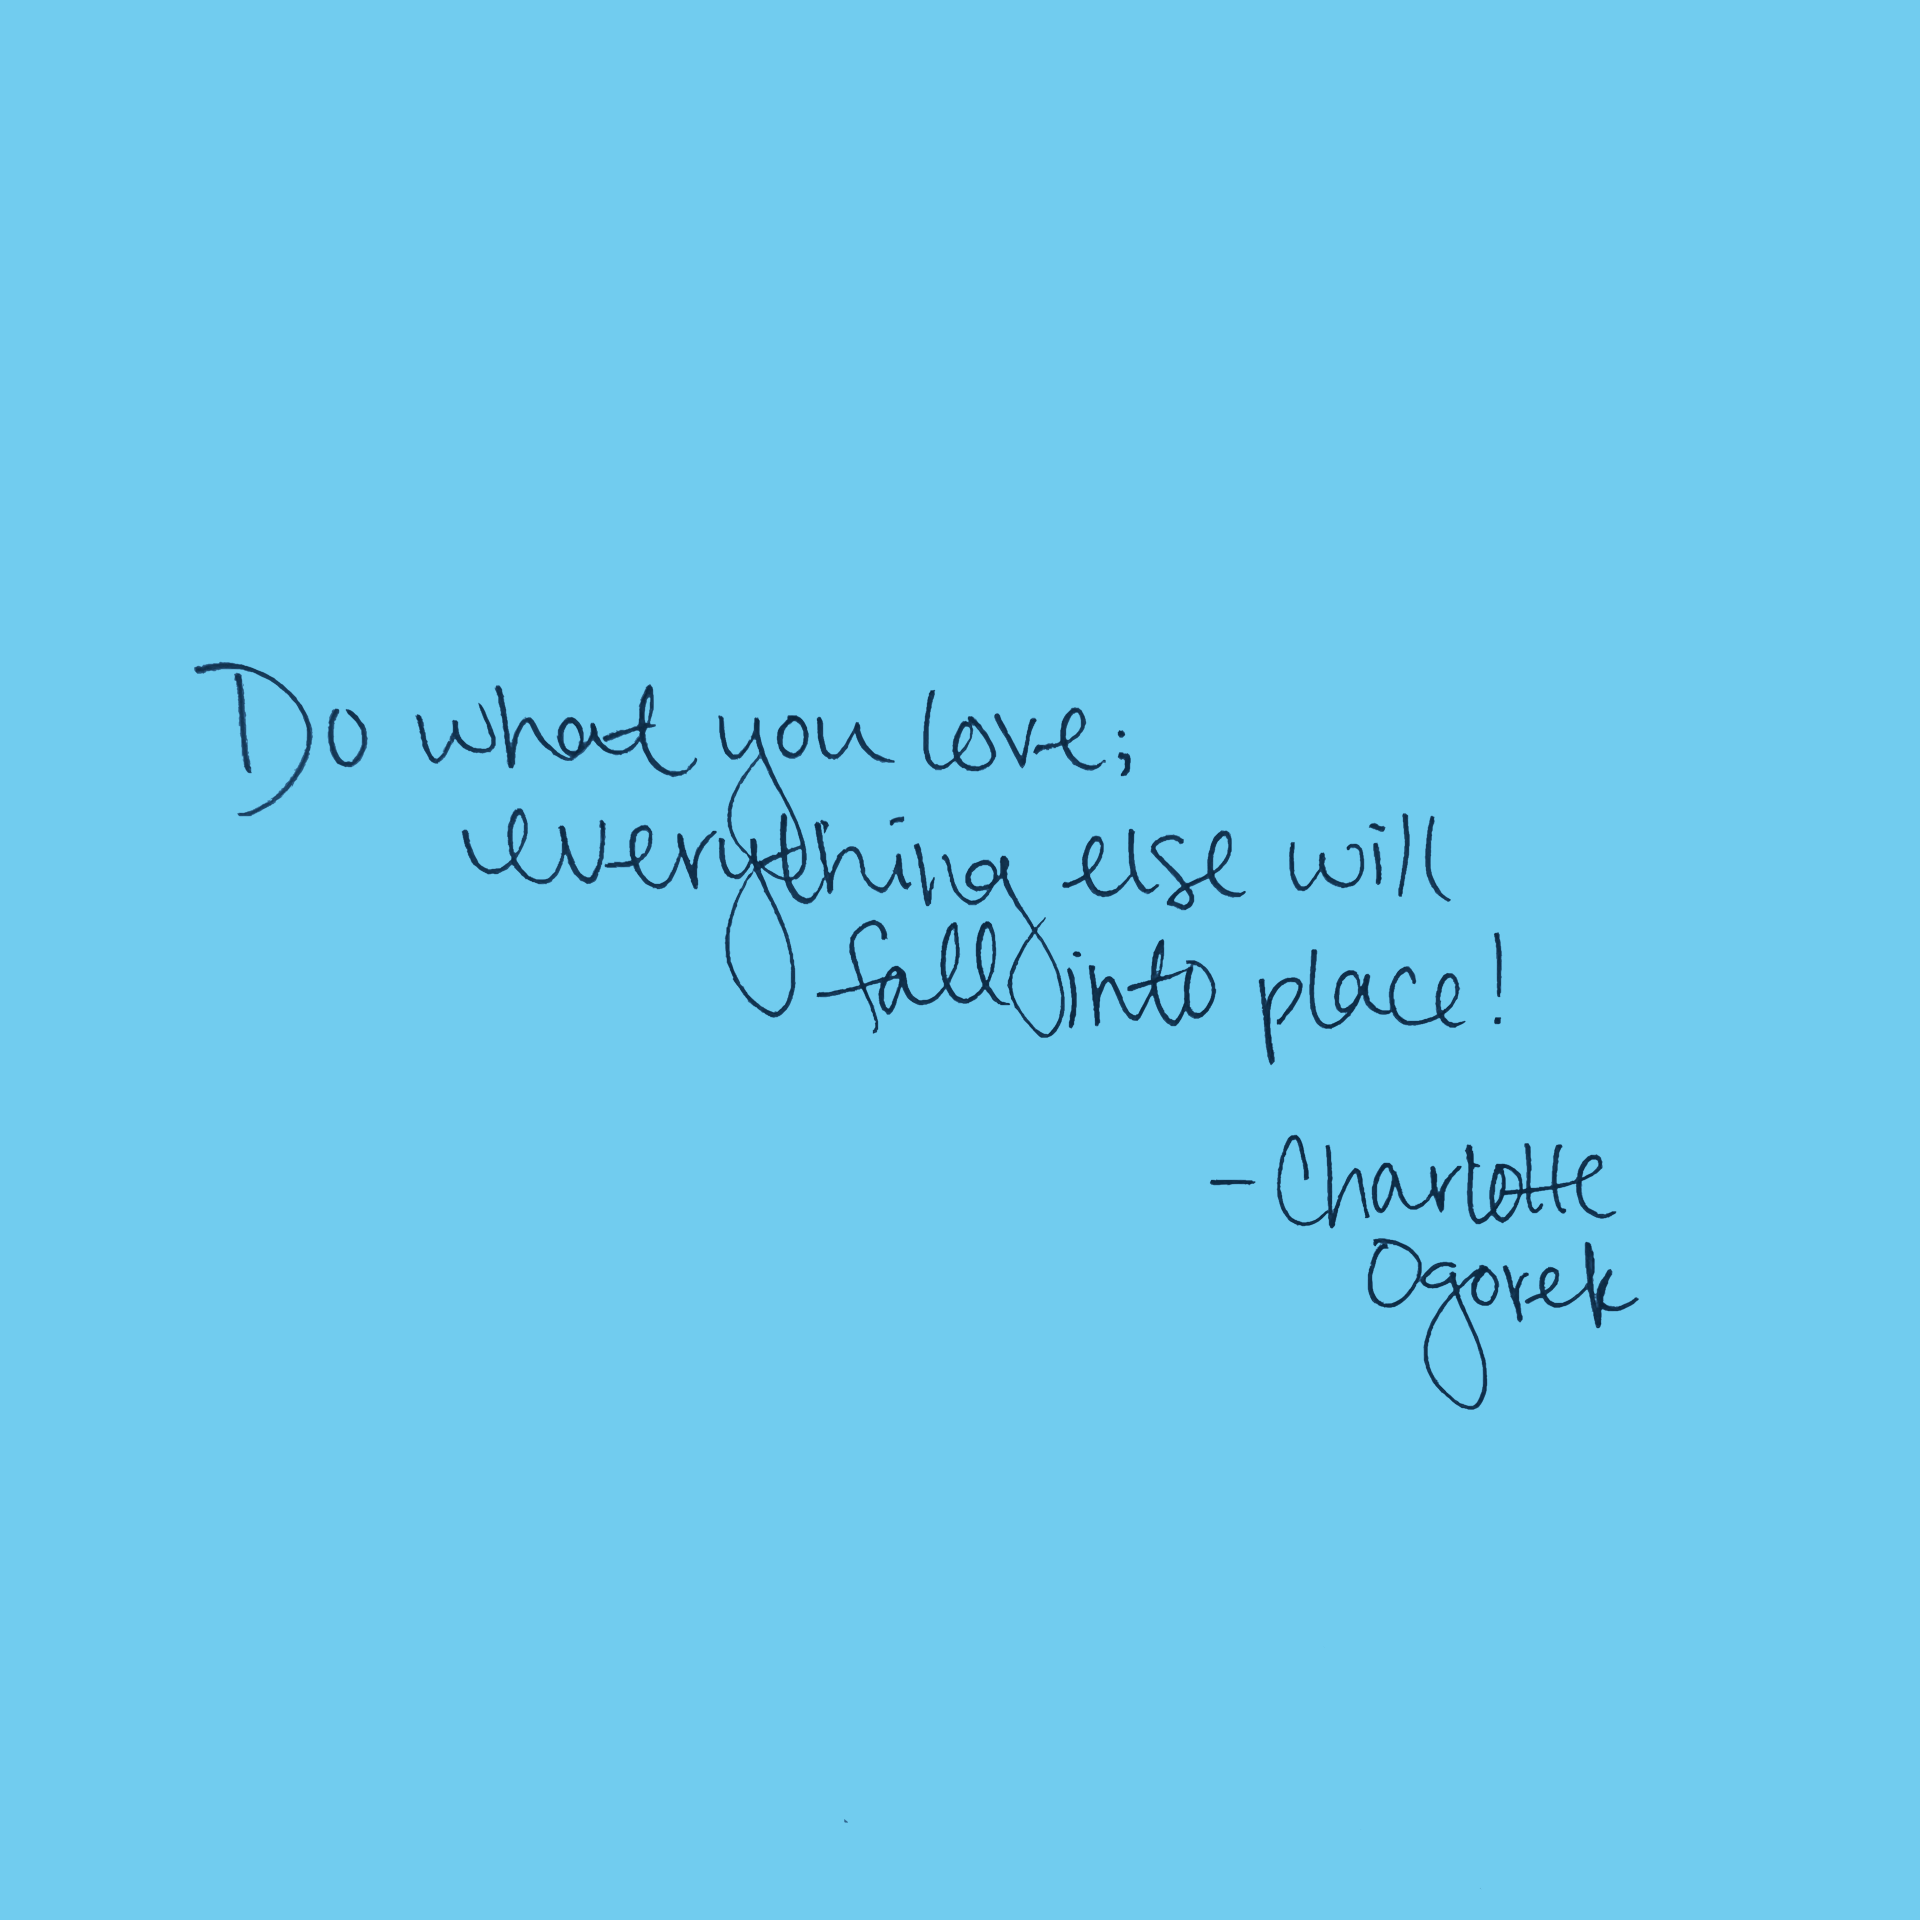 Do what you love;
everything else will
fall into place!
- Charlotte
Ogorek